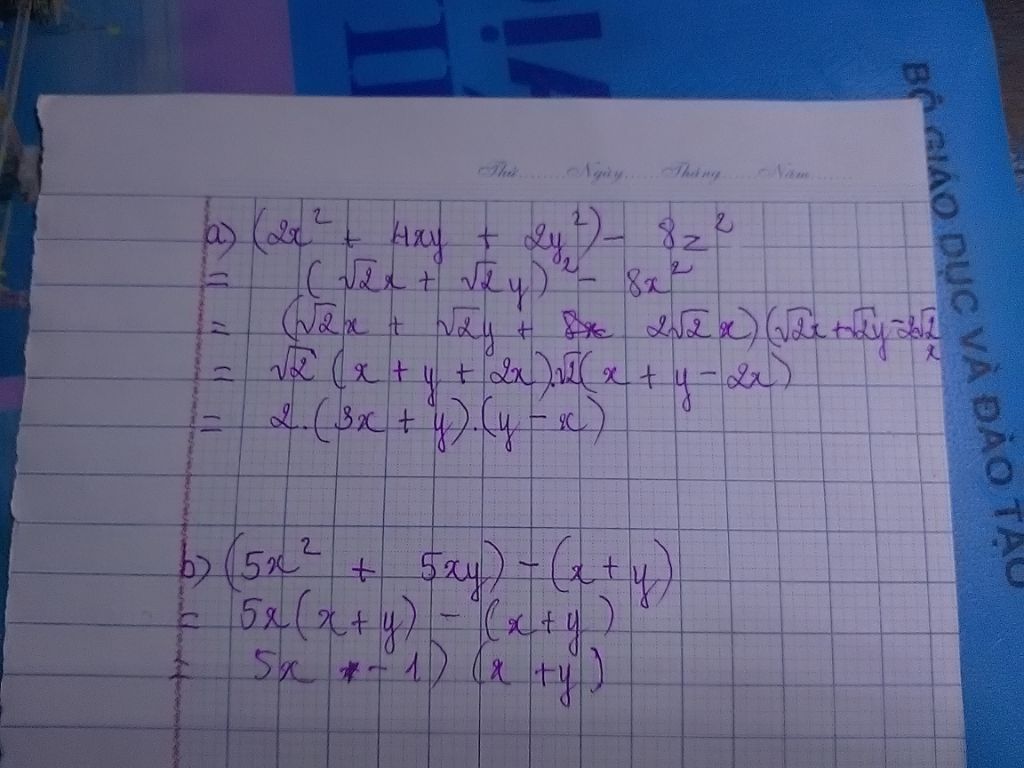 ỊA
II
BỘ GIÁO DỤC VÀ ĐÀO TẠO
Thứ.......Ngày.......Tháng.......Năm.......
a) (2x² + 4xy + 2y²) - 8z²
= (√2x + √2y)² - 8x²
= (√2x + √2y + 2√2x)(√2x + √2y - 2√2x
= √2(x + y + 2x).√2(x + y - 2x)
= 2.(3x + y).(y - x)
b) (5x² + 5xy) - (x + y)
= 5x(x + y) - (x + y)
= 5x - 1)(x + y)